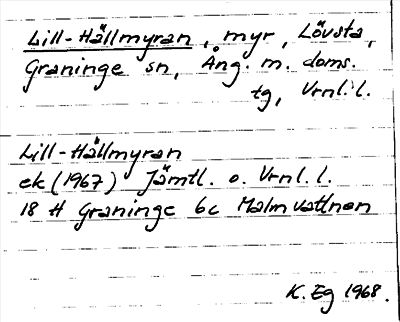 Lill-Hällmyran, myr, Lövsta,
Graninge sn, Ång. m. doms.
tg, Vrnl. l.
Lill-Hällmyran
ek (1967) Jämtl. o. Vrnl. l.
18 H Graninge 6c Malmvattnen
K. Eg 1968.